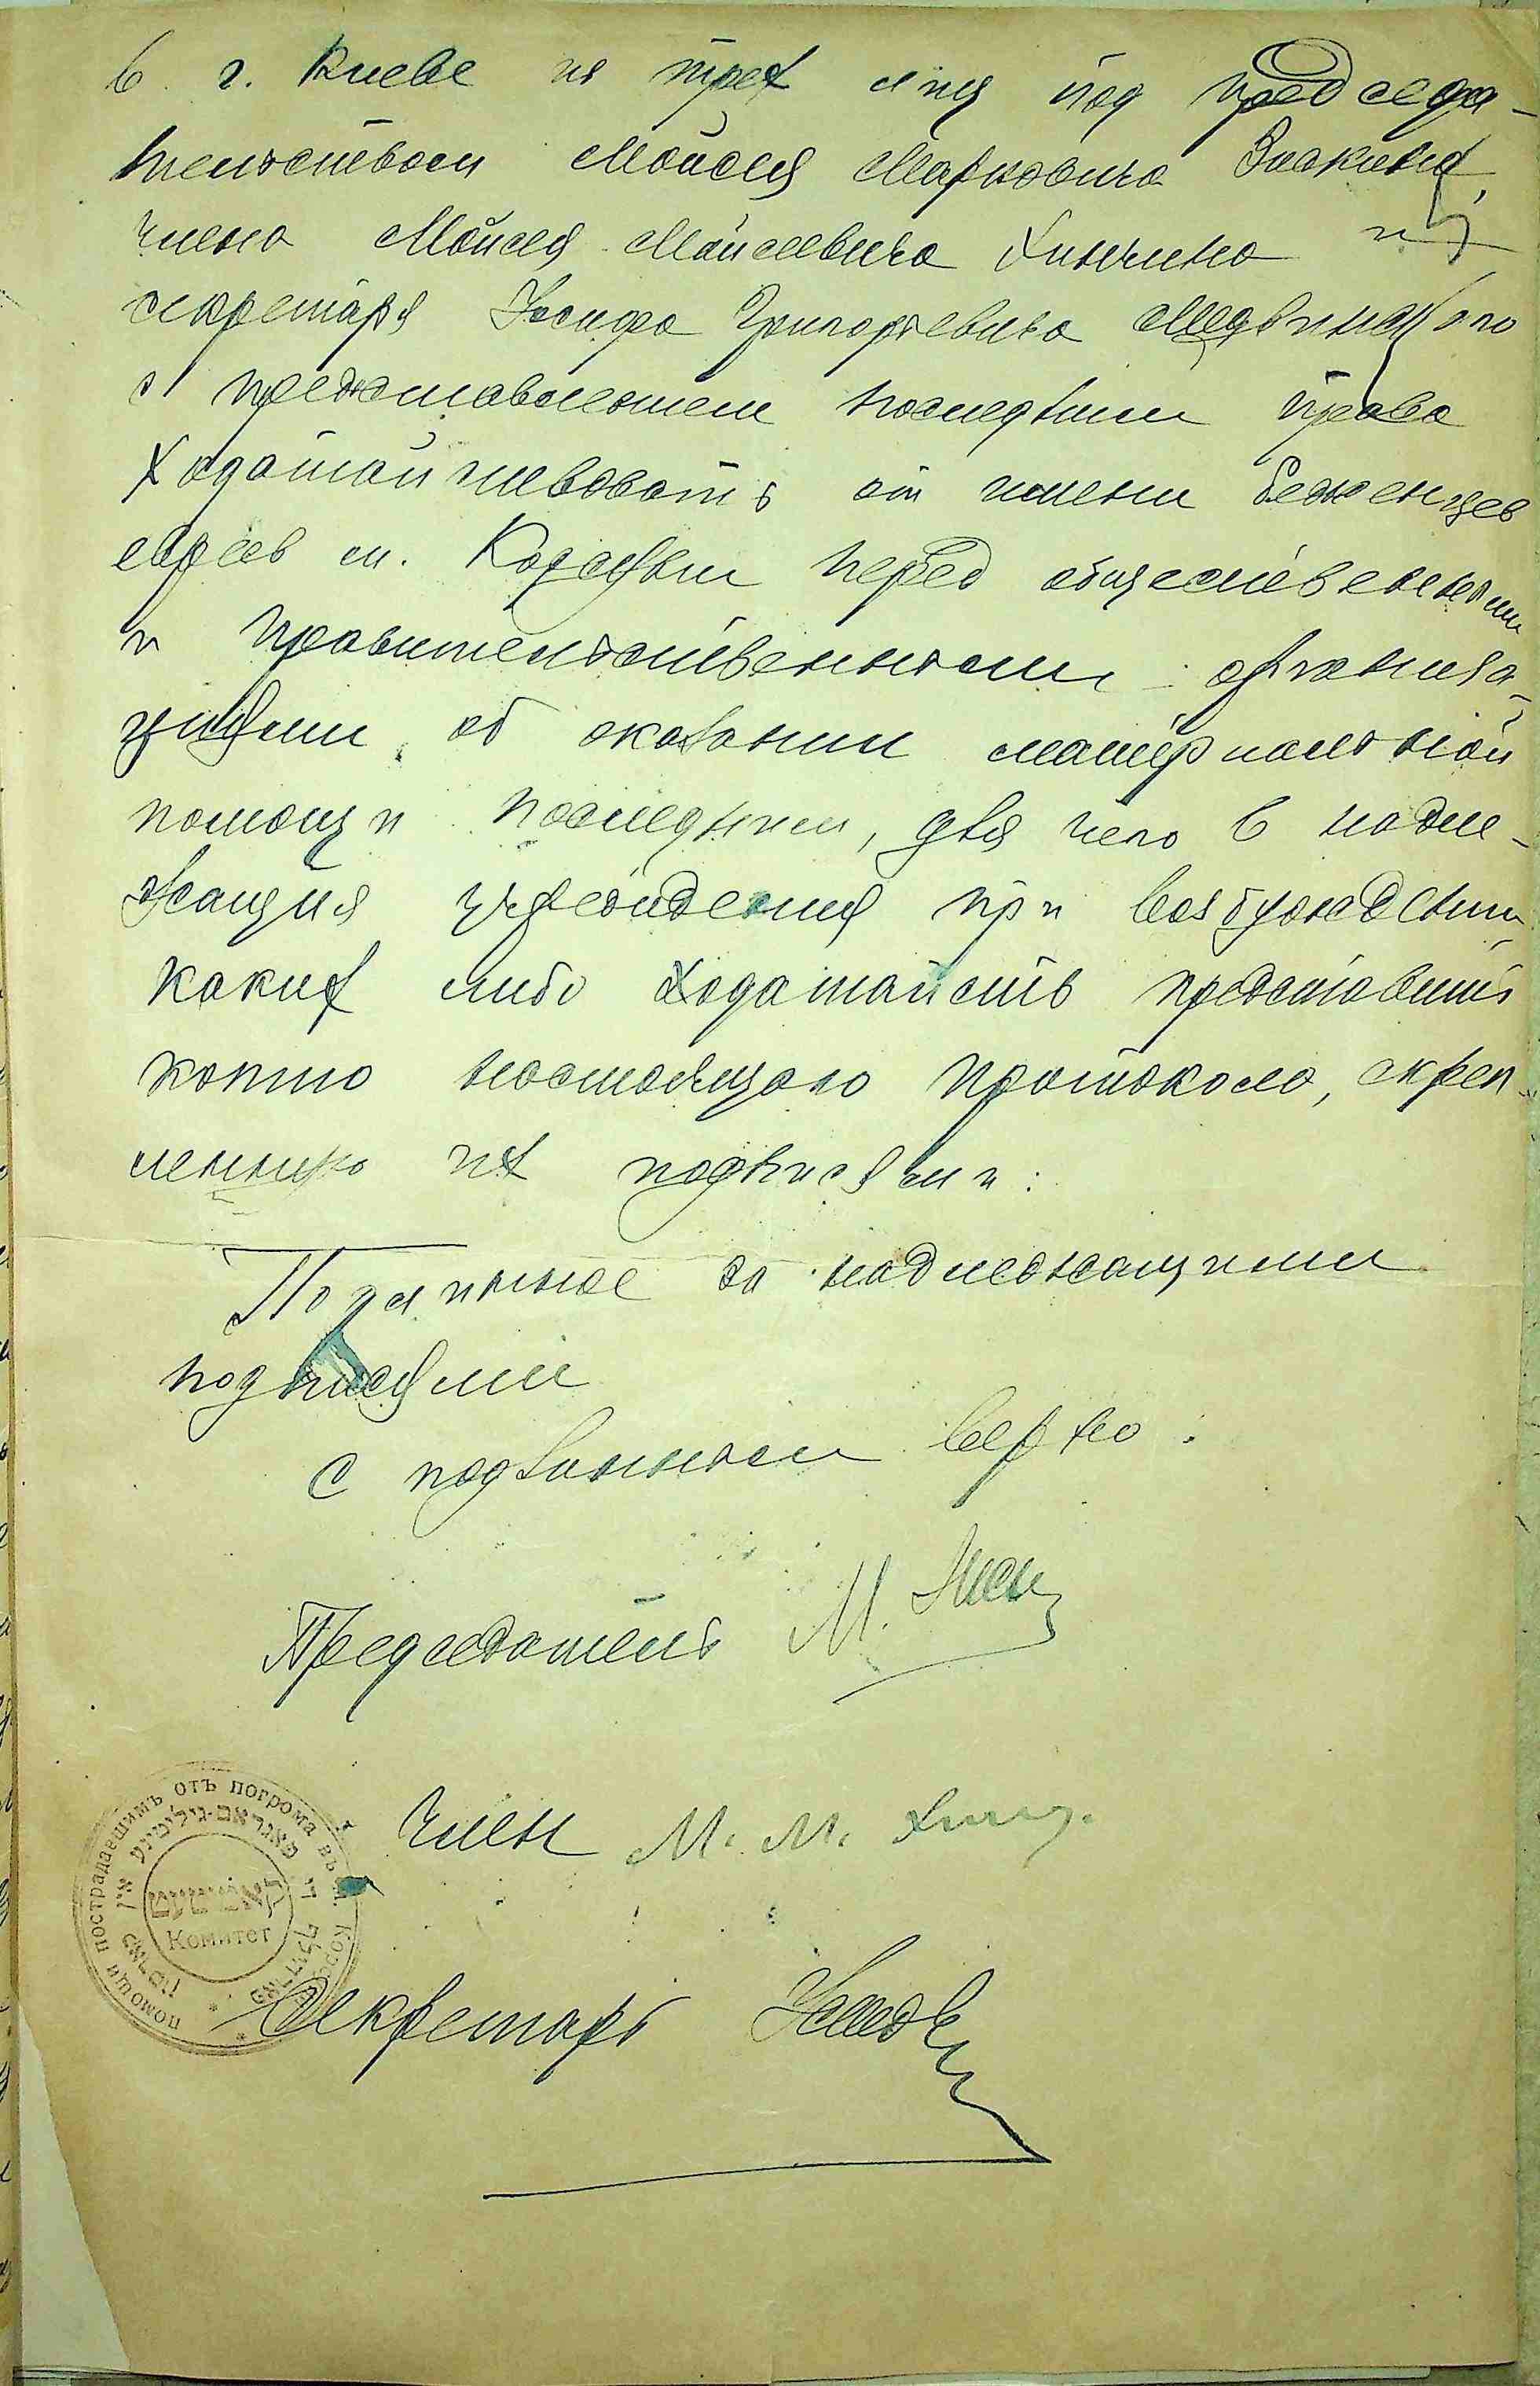 в г. Киеве из трех лиц под председа-
тельством Мойсея Марковича
члена Мойсея Мойсеевича Хинчина и
секретаря Иосифа Григорьевича
с предоставлением последним права
Ходатайствовать от имени беженцев
евреев м. Корсуни перед общественными
и правительственными организа-
циями об оказании материальной
помощи последним, для чего в надле-
жащия учреждения при возбуждении
каких либо ходатайств представить
копию настоящаго протокола, скреп-
ленную их подписями:
Подлинное за надлежащими
подписями
С подлинным верно:
Председатель М.
Член М. М. Хинч.
Секретарь
помощи пострадавшимъ отъ погрома въ м.
Комитет